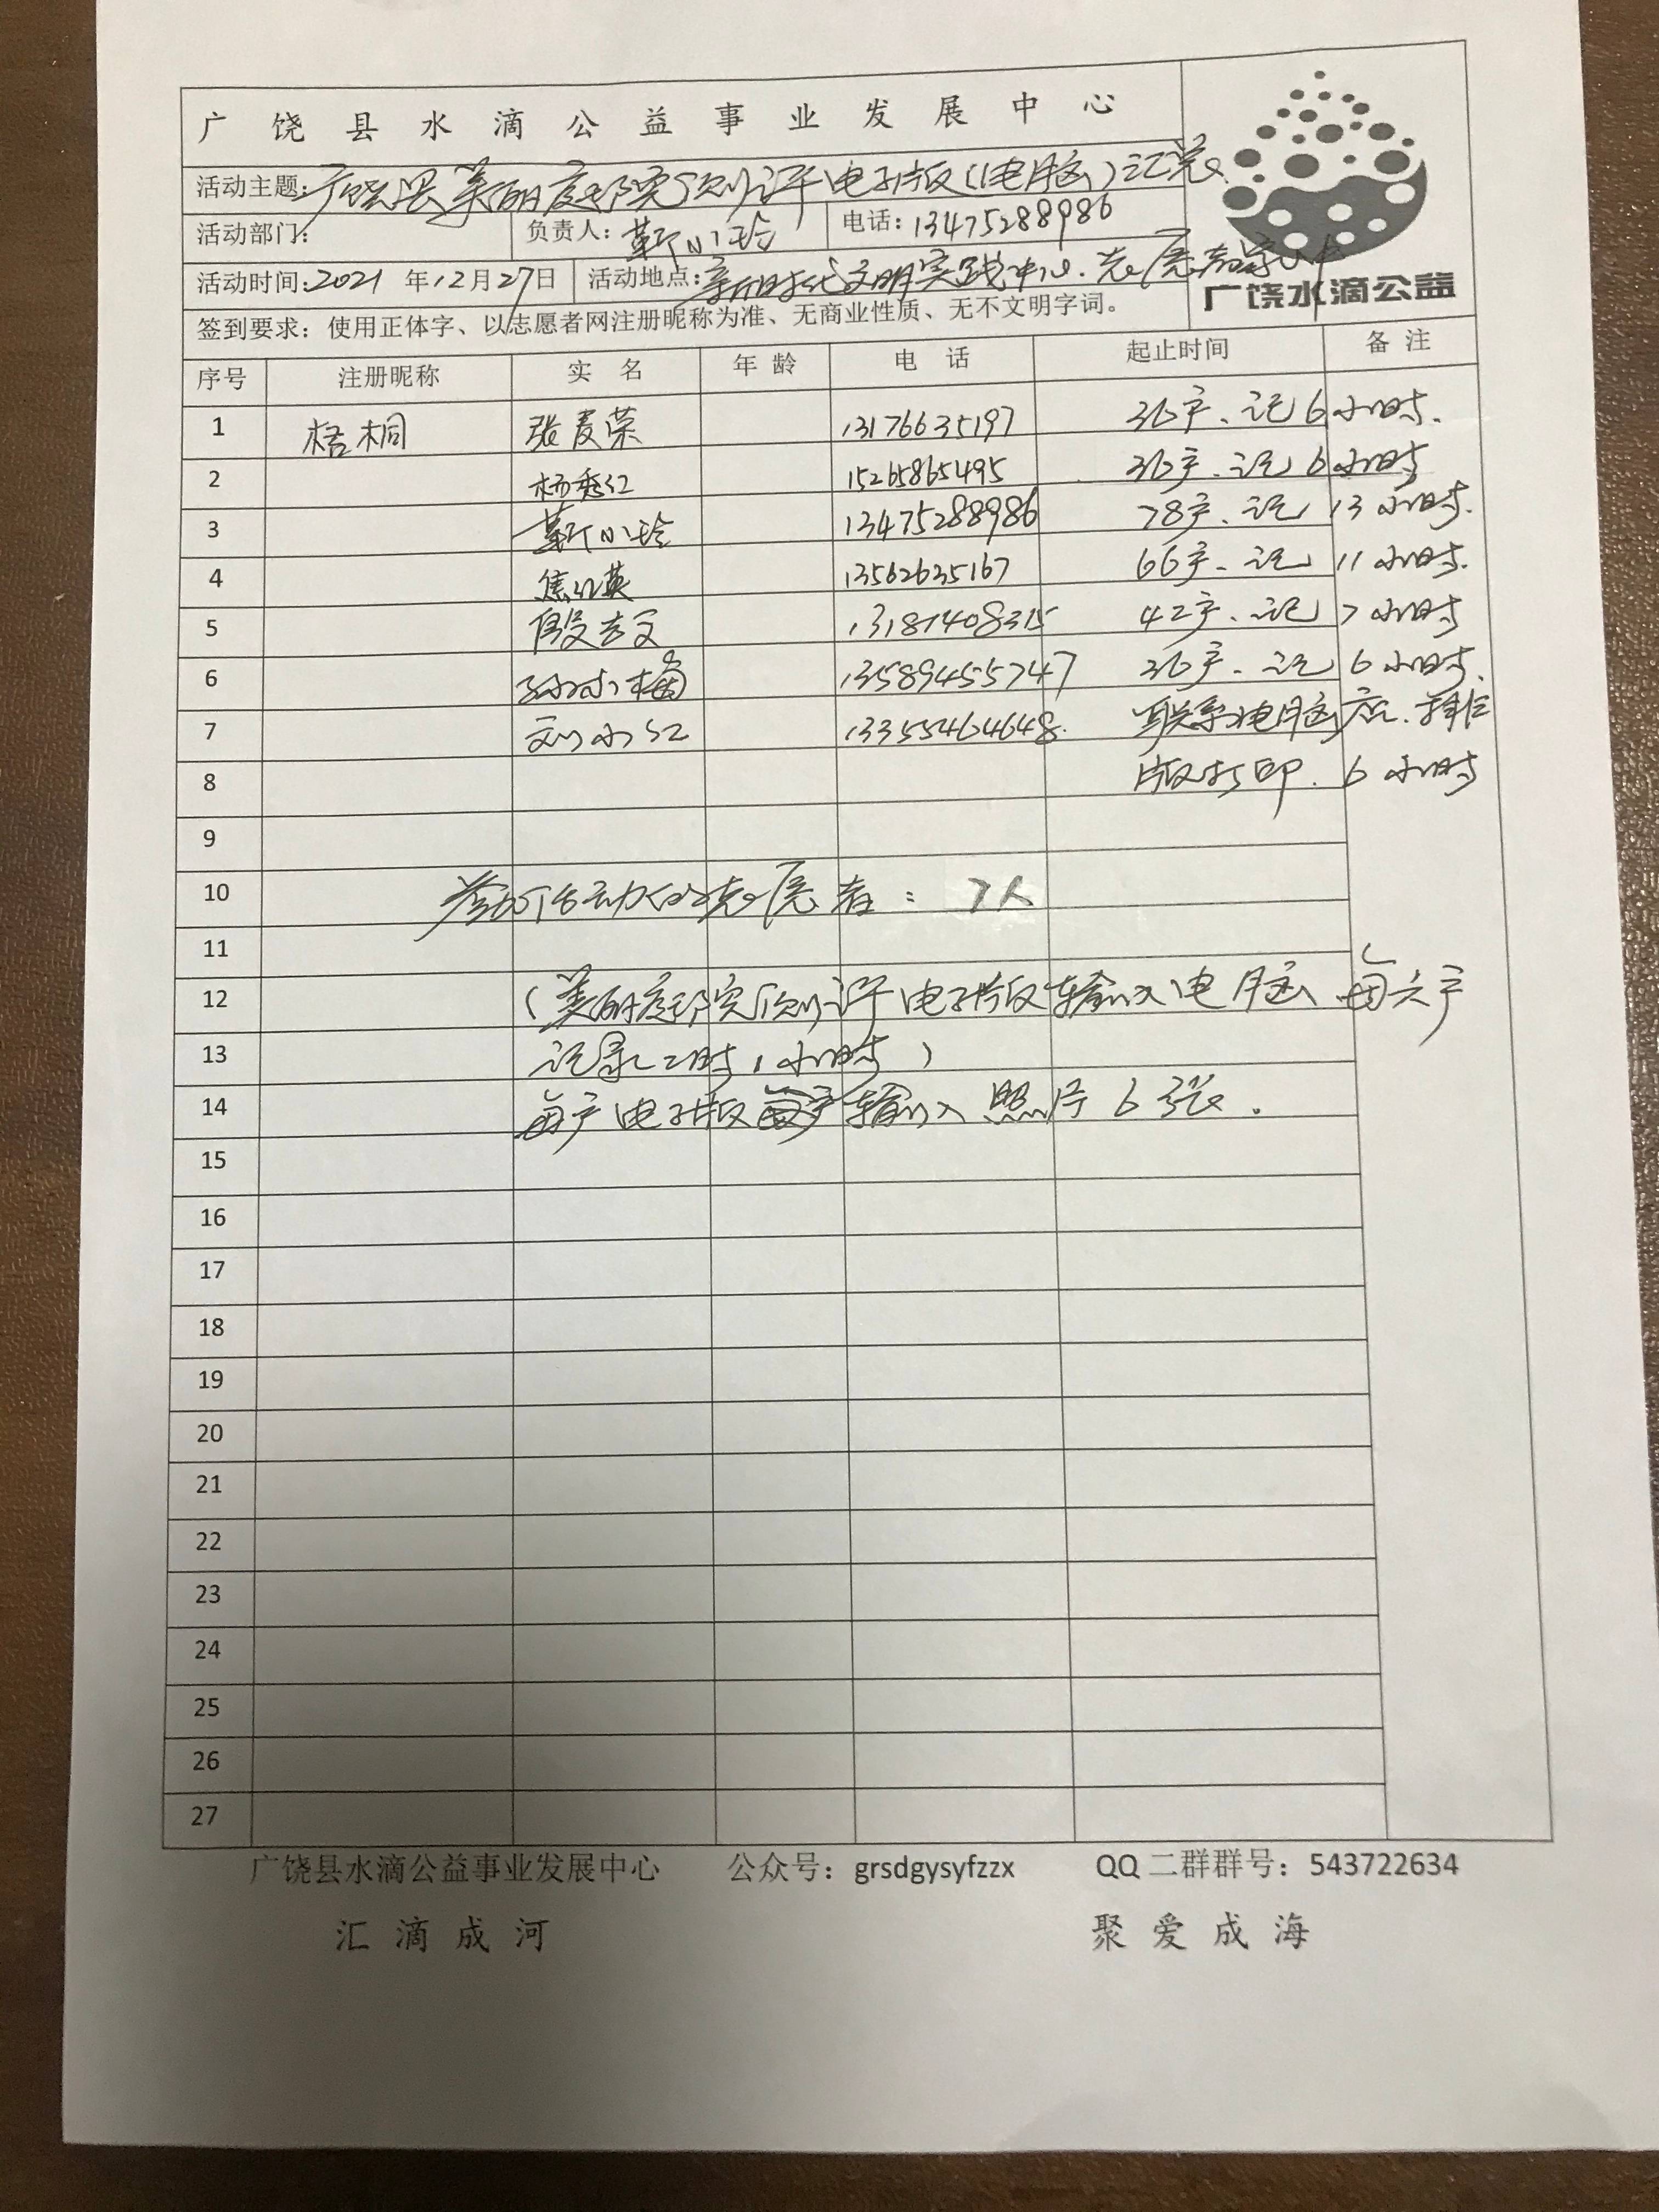 广饶县水滴公益事业发展中心
活动主题:广饶县美丽庭院预评电子版(电脑)汇总
活动部门: 负责人:靳小玲 电话:13475288986
活动时间:2021年12月27日 活动地点:新时代文明实践中心.志愿者
广饶水滴公益
签到要求:使用正体字、以志愿者网注册昵称为准、无商业性质、无不文明字词。
序号 注册昵称 实名 年龄 电话 起止时间 备注
1 梧桐 张爱荣 13176635197 36户、记6小时.
2 杨秀红 15265865495 36户、记6小时
3 靳小玲 13475288986 78户、记13小时.
4 焦红英 13562635167 66户、记11小时.
5 段志文 13181408315 42户、记7小时
6 孙小梅 13589455747 36户、记6小时.
7 刘小红 13355464648. 联系电脑店.排
8 版打印.6小时
9
10 参加活动的志愿者:7人
11
12 (美丽庭院预评电子版输入电脑每六户
13 记录工时1小时)
14 每户电子版每户输入照片6张.
15
16
17
18
19
20
21
22
23
24
25
26
27
广饶县水滴公益事业发展中心 公众号:grsdgysyfzzx QQ二群群号:543722634
汇滴成河 聚爱成海